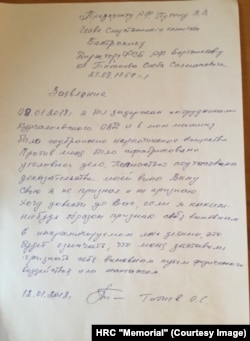 Президенту РФ Путину В.В.
Главе Следственного комитета
Бастрыкину
Директору ФСБ РФ Бортникову
Титиева Оюба Салмановича
Заявление
09.01.2018г. я был задержан сотрудниками
Курчалоевского ОВД и в мою машину
было подброшено наркотическое вещество
Против меня было сфабриковано
уголовное дело. Полностью подтасованы
доказательства моей вины. Вину
свою я не признал и не признаю.
Хочу довести до Вас, если я каким-
нибудь образом признаю себя виновным
в инкриминируемом мне деянии, это
будет означать, что меня заставили
признать себя виновным путем физического
воздействия или шантажом
12.01.2018. Титиев О.С.
HRC "Memorial" (Courtesy Image)